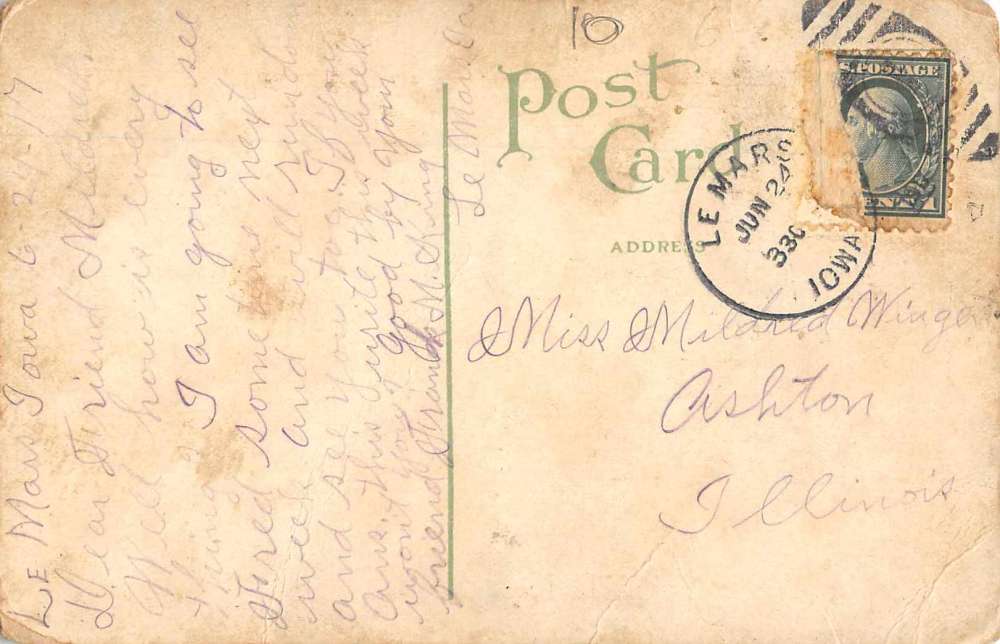 Le Mars Iowa 6-24-17
Dear Friend Mildred
Well how is every
thing I am going to see
Fred some time next
week and will run down
and see you too. If you
ans. this write this week
wont be good by your
friend Frank M. King
Le Mars
10
Post
Card
ADDRESS
LE MARS
JUN 24
330
IOWA
U.S. POSTAGE
Miss Mildred Winge
Ashton
Illinois